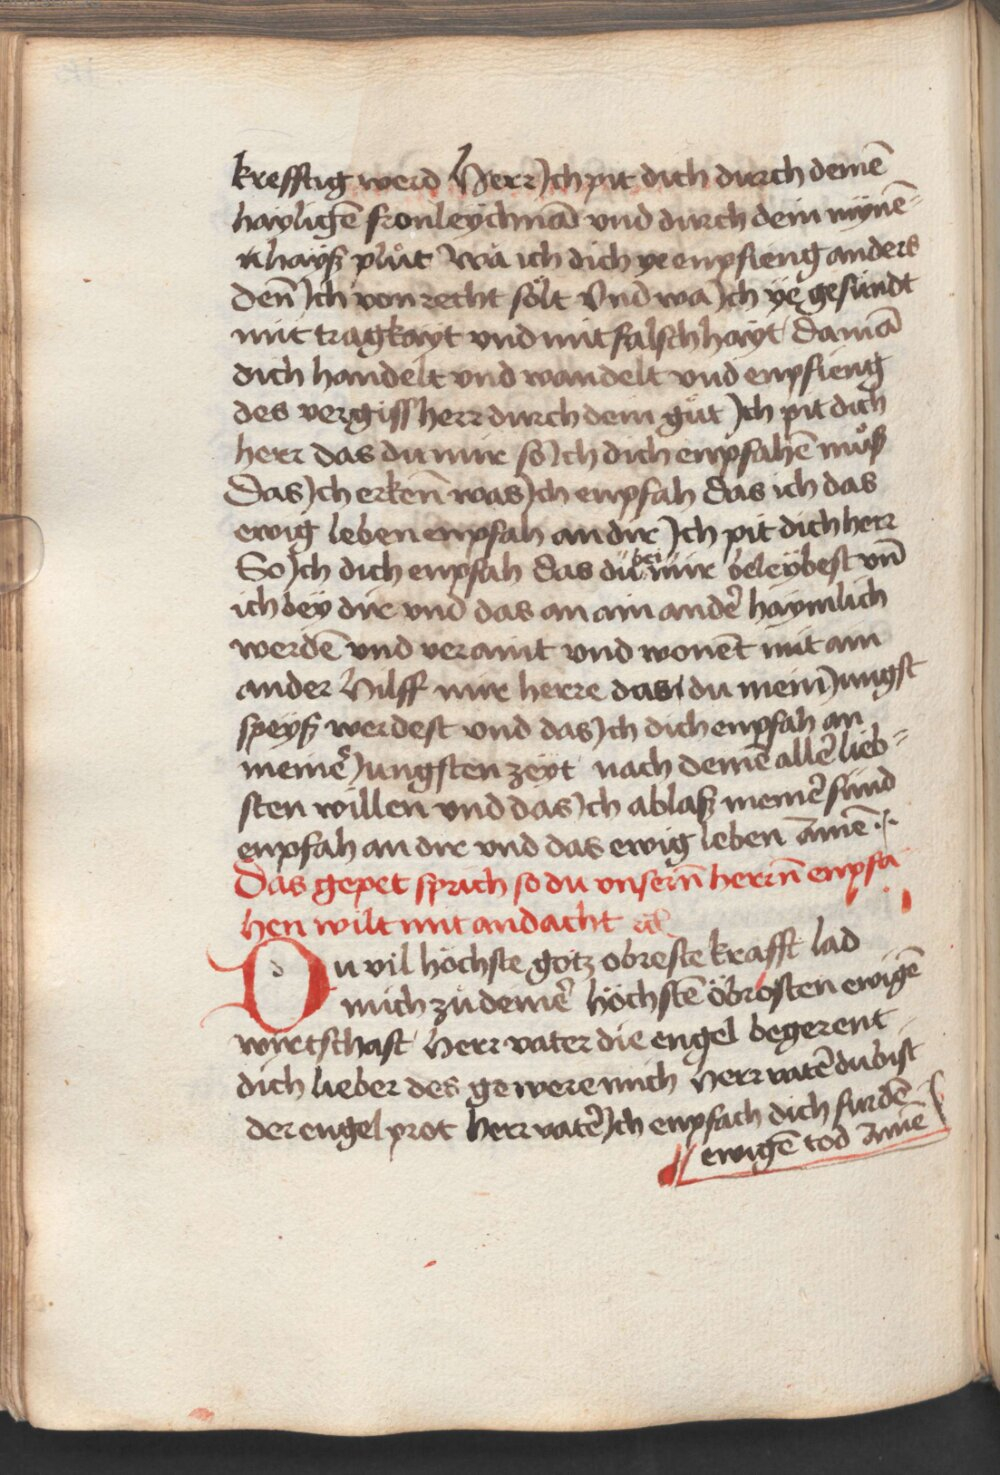 krefftig werd Herr Ich pit dich durch deinē
hayligē fronleychnā vnd durch dein mynē=
khayß plůt Wa ich dich ye enpfieng anders
den̄ Ich von recht sölt Vnd wa Ich ye gesündt
mit tragkayt vnd mit falschhayt Da mā
dich handelt vnd wandelt vnd enpfieng
des vergiss herr durch dein gůt Ich pit dich
herr das du mir so Ich dich enpfahē můß
Das Ich erken̄ was Ich enpfah das ich das
ewig leben enpfah an dir Ich pit dich herr
So Ich dich enpfah das du bei mir beleybest vn̄
ich bey dir vnd das an ain andē haymlich
werdē vnd veraint vnd wonēt mit ain
ander Hilff mir herre das du mein Jungst
speyß werdest vnd das Ich dich enpfah an
meinē Jungsten zeyt nach deinē allē lieb=
sten willen vnd das Ich ablaß meinē sünd
enpfah an dir vnd das ewig leben Amē
Das gepet sprich so du vnsern̄ herrn̄ enpfa
hen wilt mit andacht
Du vil höchste gotz obreste krafft lad
mich zů deinē höchstē öbrosten ewigē
wyrtschaft Herr vater die engel begerent
dich lieber des gewere mich Herr vatē du bist
der engel prot herr vatē Ich enpfach dich fur dē
ewigē tod Amē